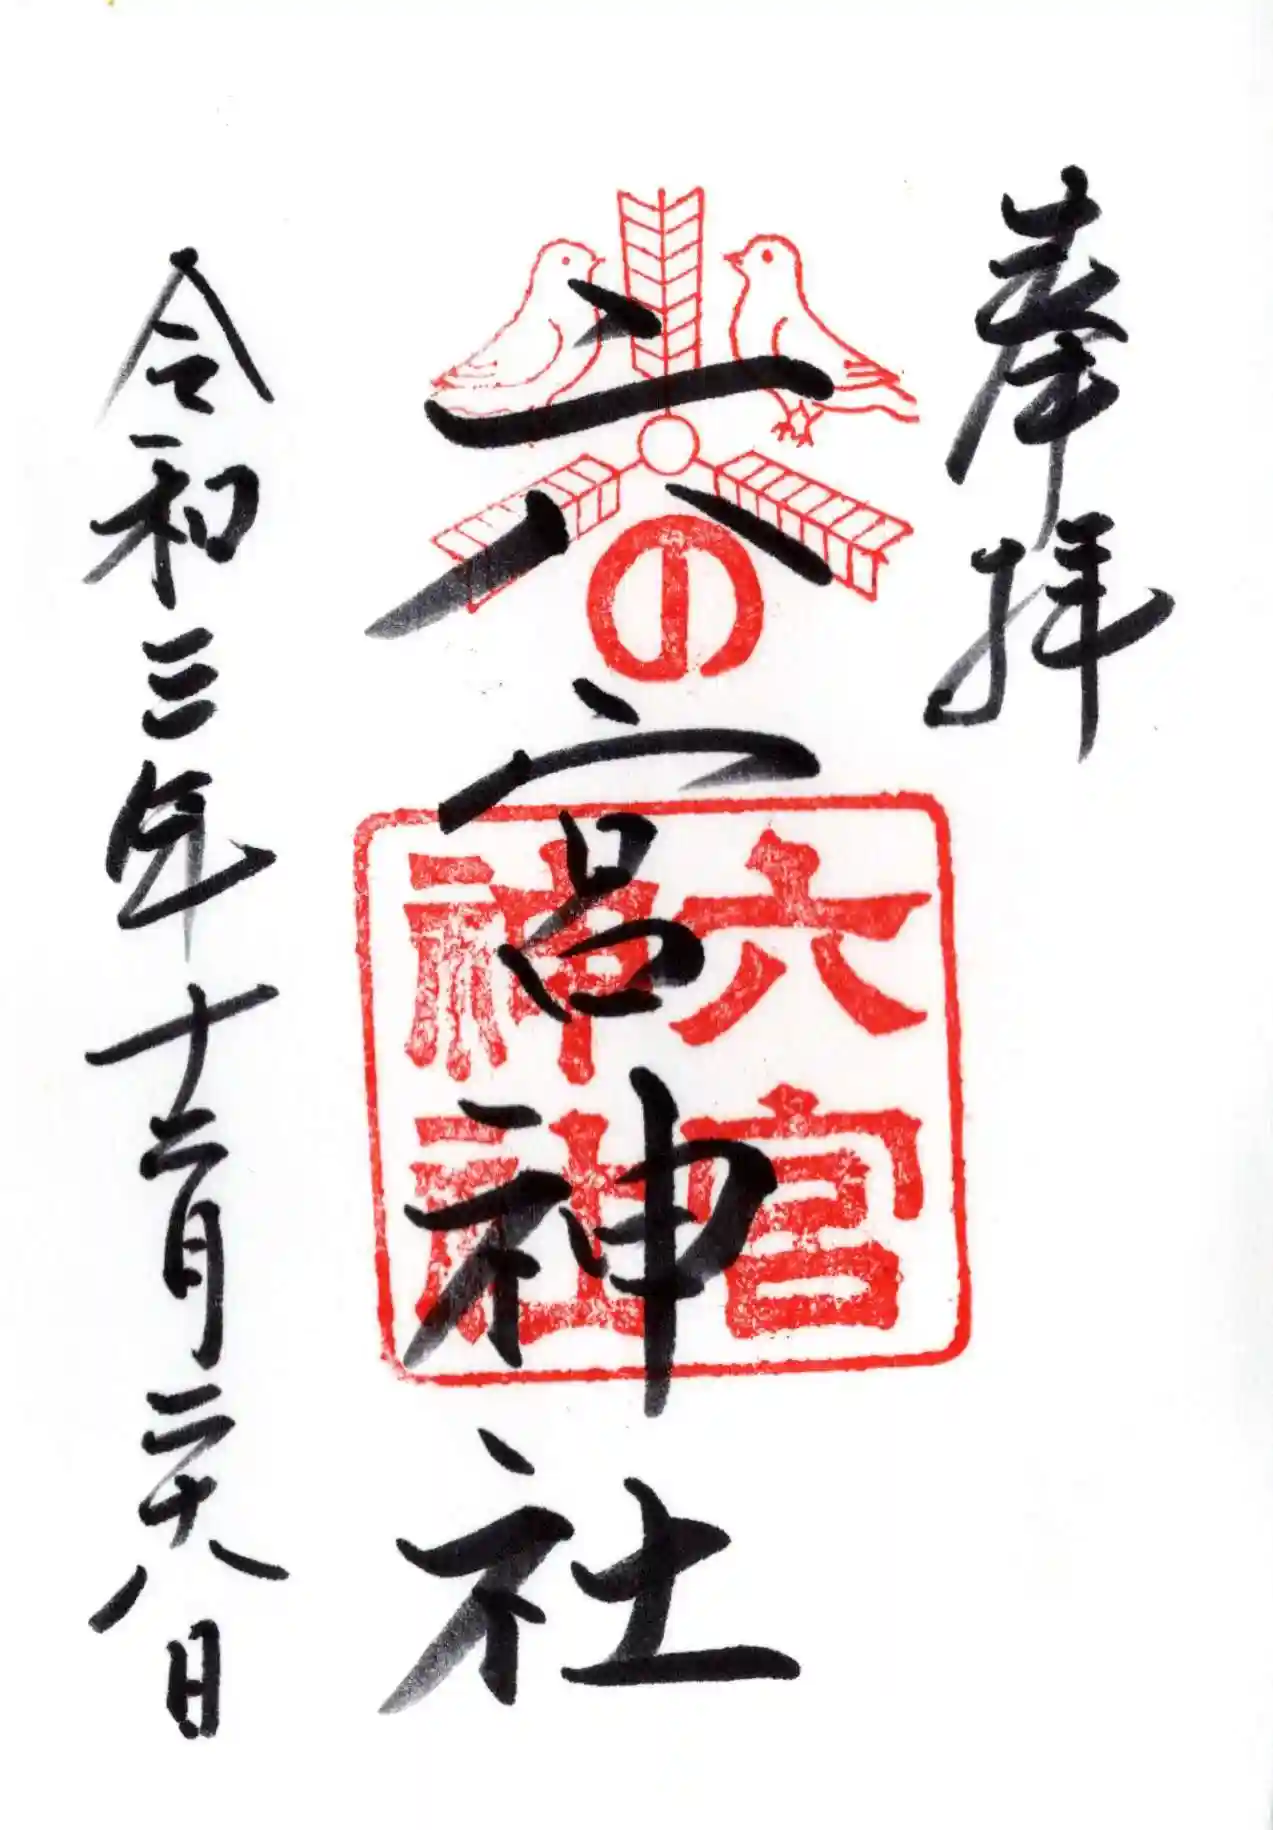 奉拝
六の宮神社
六宮
神社
令和三年十二月二十八日